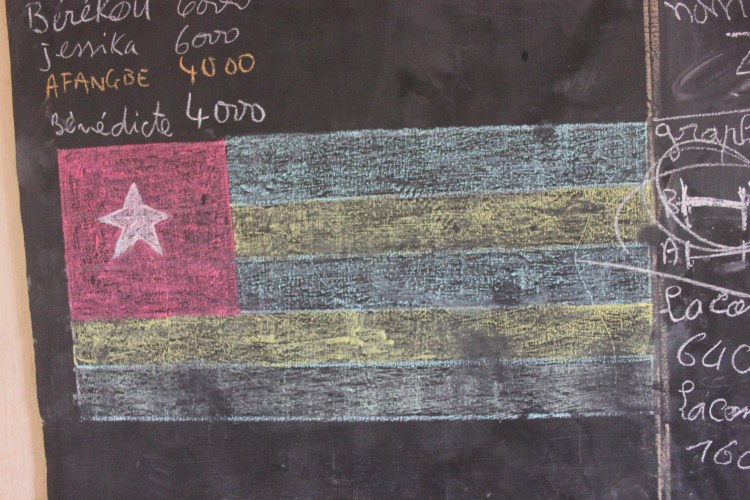 Bérékou 6000
Jessika 6000
AFANGBE 4000
Bénédicte 4000
nom
graph
R
A
Laco
640
Lacon
160